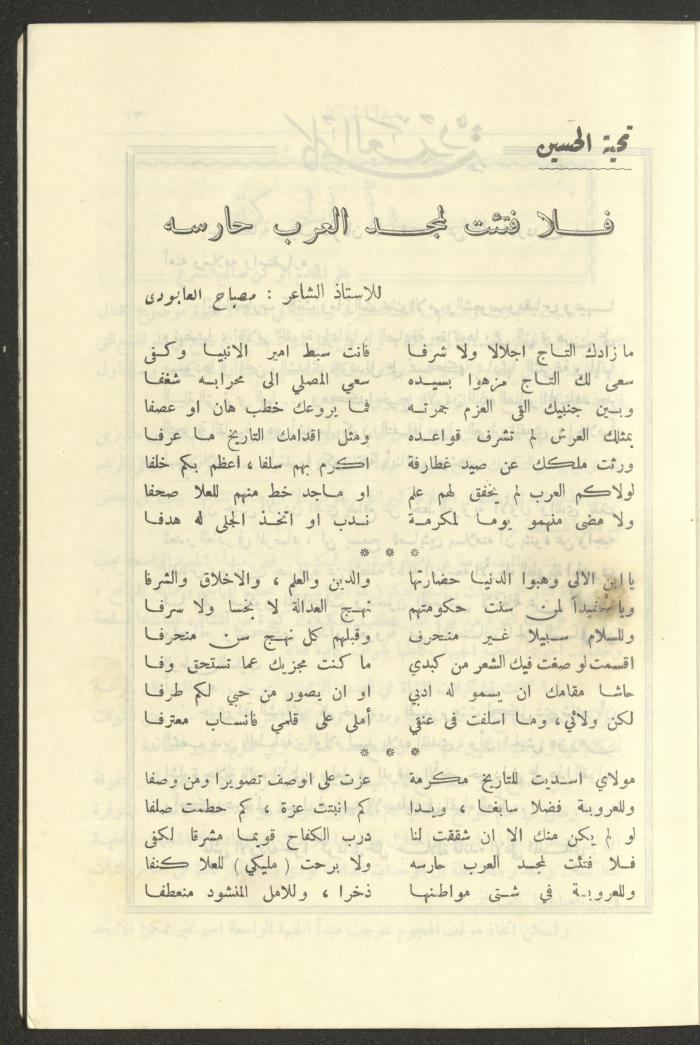 تحية الحسين
فلا فتئت لمجد العرب حارسه
للاستاذ الشاعر : مصباح العابودى
ما زادك التاج اجلالا ولا شرفا فانت سبط امير الانبيا وكفى
سعى لك التاج مزهوا بسيده سعي المصلي الى محرابه شغفا
وبين جنبيك القى العزم جمرته فما يروعك خطب هان او عصفا
بمثلك العرش لم تشرف قواعده ومثل اقدامك التاريخ ما عرفا
ورثت ملكك عن صيد غطارفة اكرم بهم سلفا ، اعظم بكم خلفا
لولاكم العرب لم يخفق لهم علم او ماجد خط منهم للعلا صحفا
ولا مضى منهمو يوما لمكرمة ندب او اتخذ الجلى له هدفا
* * *
يا ابن الالى وهبوا الدنيا حضارتها والدين والعلم ، والاخلاق والشرفا
ويا حفيداً لمن سنت حكومتهم نهج العدالة لا بخسا ولا سرفا
وللسلام سبيلا غير منحرف وقبلهم كل نهج سن منحرفا
اقسمت لو صغت فيك الشعر من كبدي ما كنت مجزيك عما تستحق وفا
حاشا مقامك ان يسمو له ادبي او ان يصور من حبي لكم طرفا
لكن ولائي ، وما اسلفت فى عنقي أملى على قلمي فانساب معترفا
* * *
مولاي اسديت للتاريخ مكرمة عزت على اوصف تصويرا ومن وصفا
وللعروبة فضلا سابغا ، ويدا كم انبتت عزة ، كم حطمت صلفا
لو لم يكن منك الا ان شققت لنا درب الكفاح قويما مشرقا لكفى
فلا فتئت لمجد العرب حارسه ولا برحت ( مليكي ) للعلا كنفا
وللعروبة في شتى مواطنها ذخرا ، وللامل المنشود منعطفا